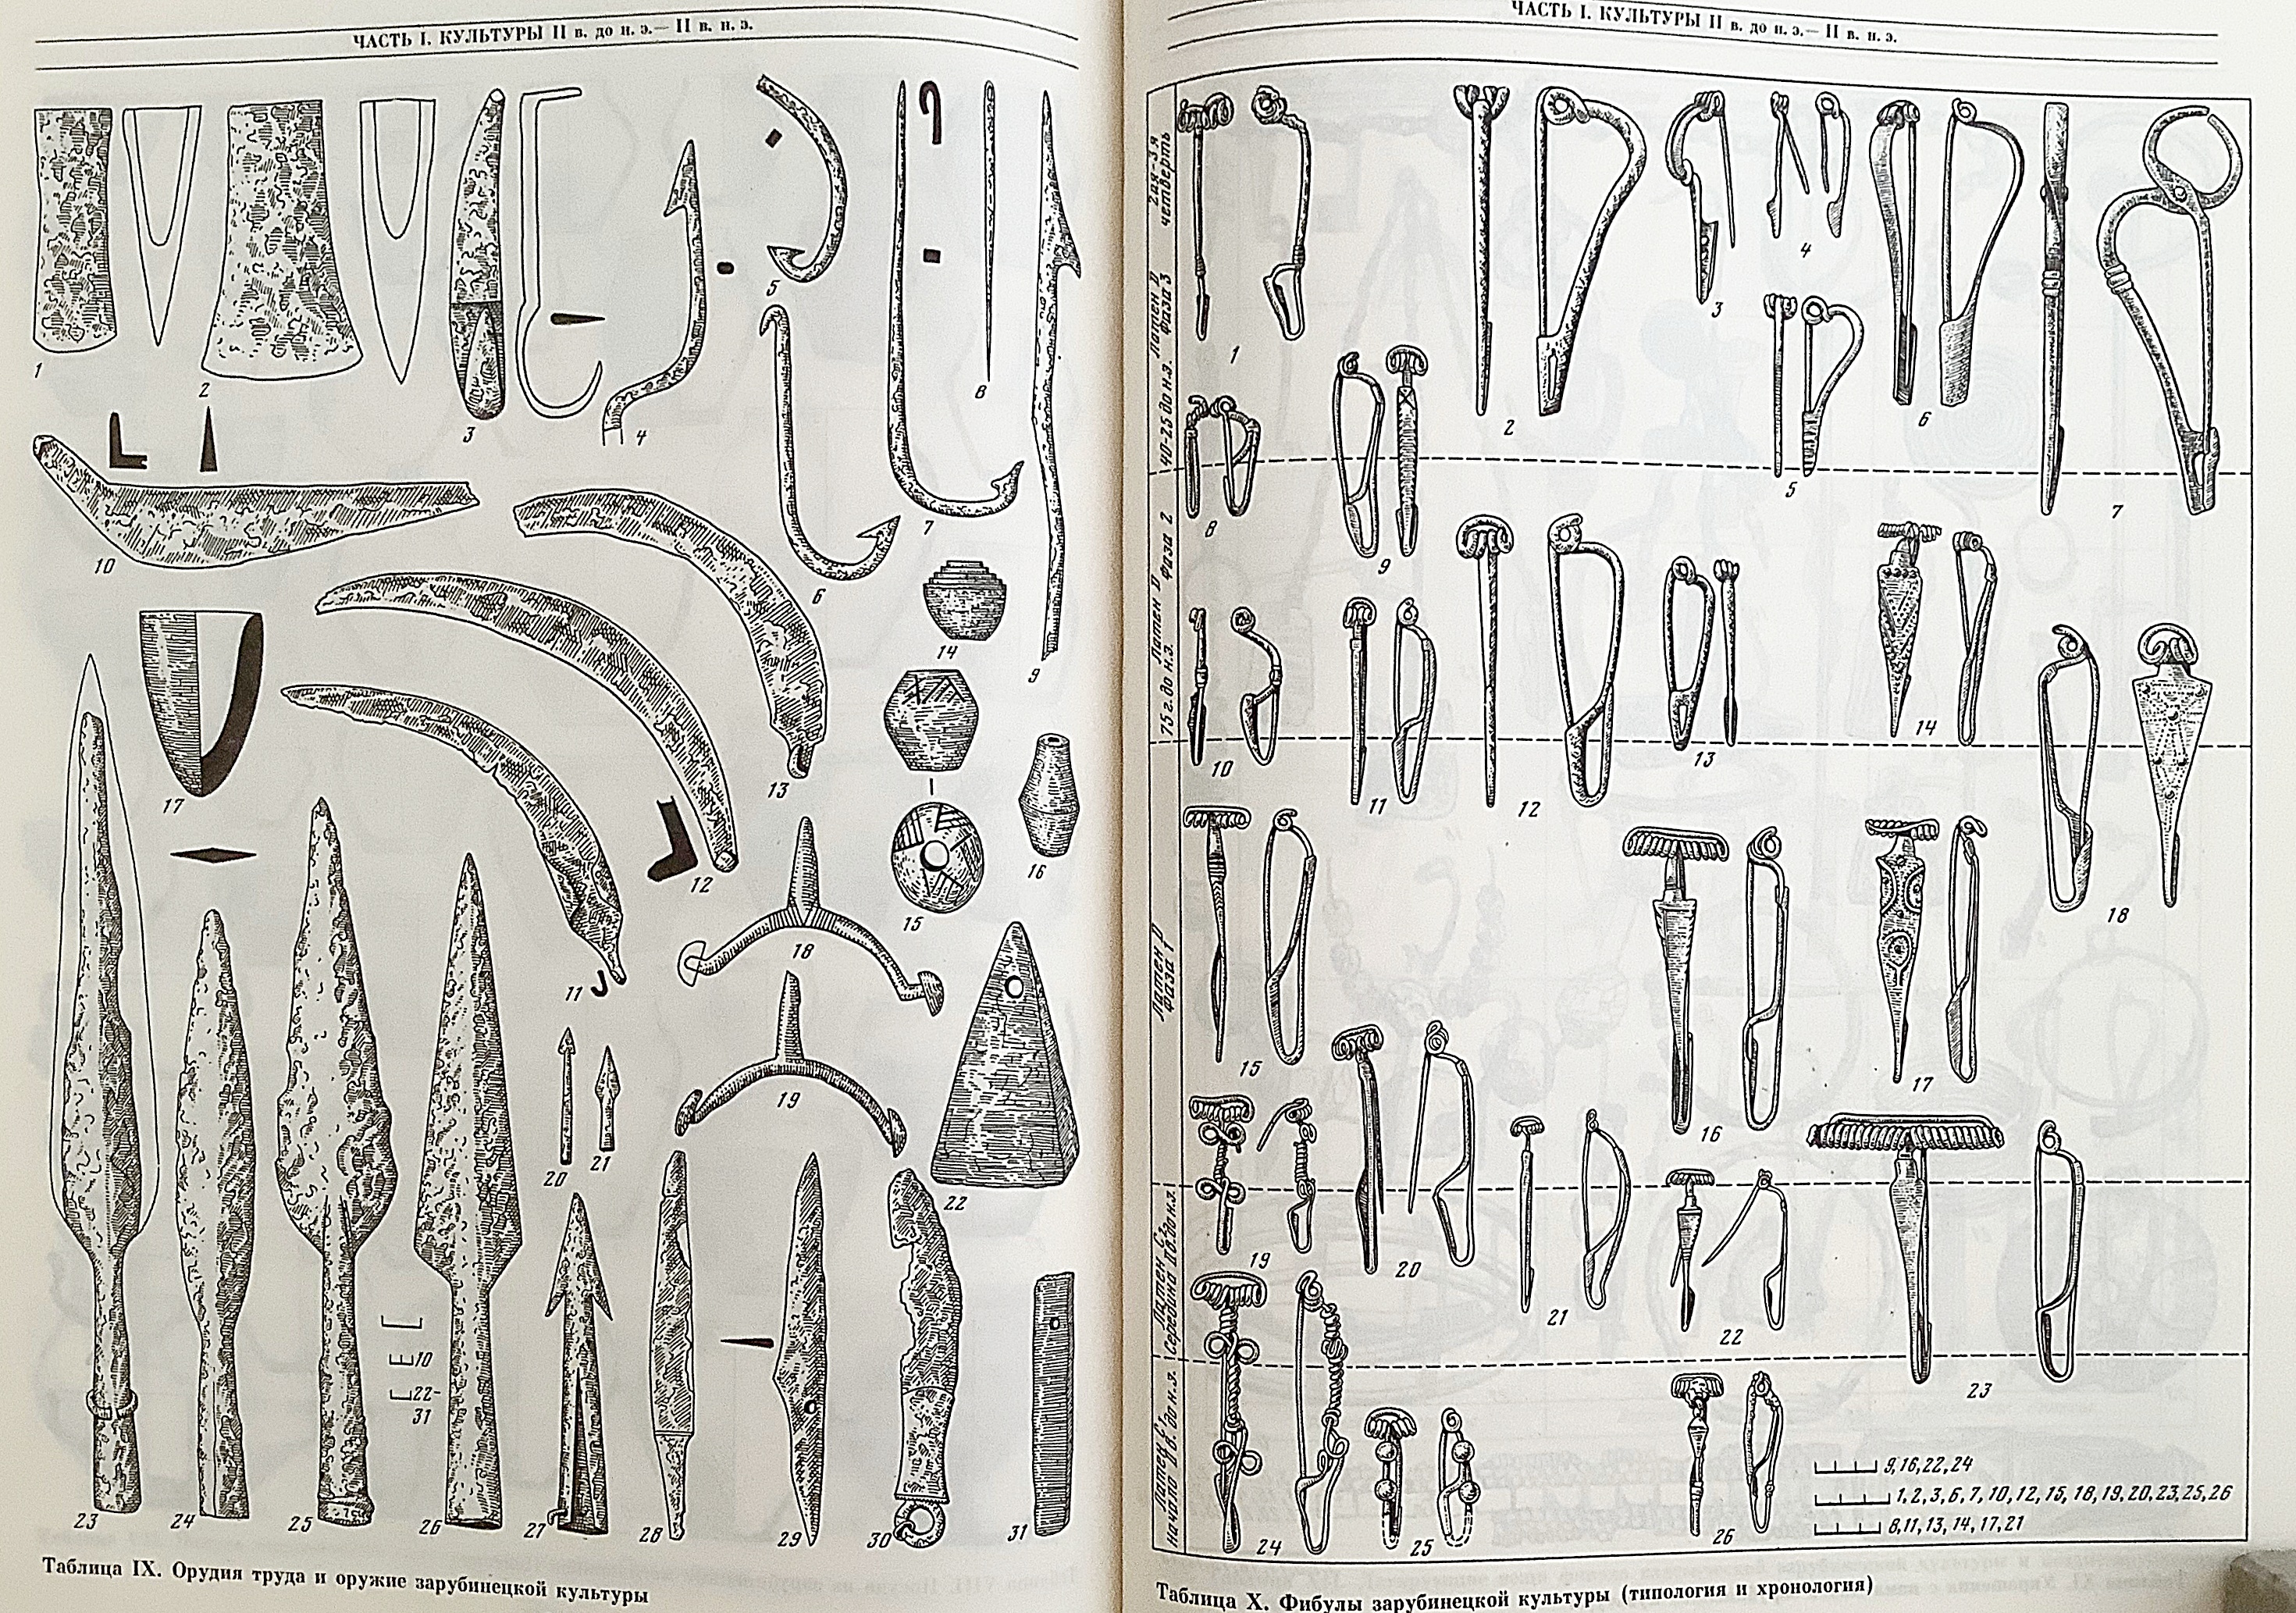 ЧАСТЬ I. КУЛЬТУРЫ II в. до н. э.— II в. н. э.
1
2
3
4
5
6
7
8
9
10
11
12
13
14
15
16
17
18
19
20
21
22
23
24
25
26
27
28
29
30
31
10
22-
31
Таблица IX. Орудия труда и оружие зарубинецкой культуры
ЧАСТЬ I. КУЛЬТУРЫ II в. до н. э.— II в. н. э.
2ая-3я
четверть
Латен D
фаза 3
40-25 до н.э.
Латен D
фаза 2
75 г. до н.э.
Латен D
фаза 1
Латен C2
Середина II в. до н.э.
Латен C1
начало II в. до н.э.
1
2
3
4
5
6
7
8
9
10
11
12
13
14
15
16
17
18
19
20
21
22
23
24
25
26
9,16,22,24
1,2,3,6,7,10,12,15,18,19,20,23,25,26
8,11,13,14,17,21
Таблица X. Фибулы зарубинецкой культуры (типология и хронология)